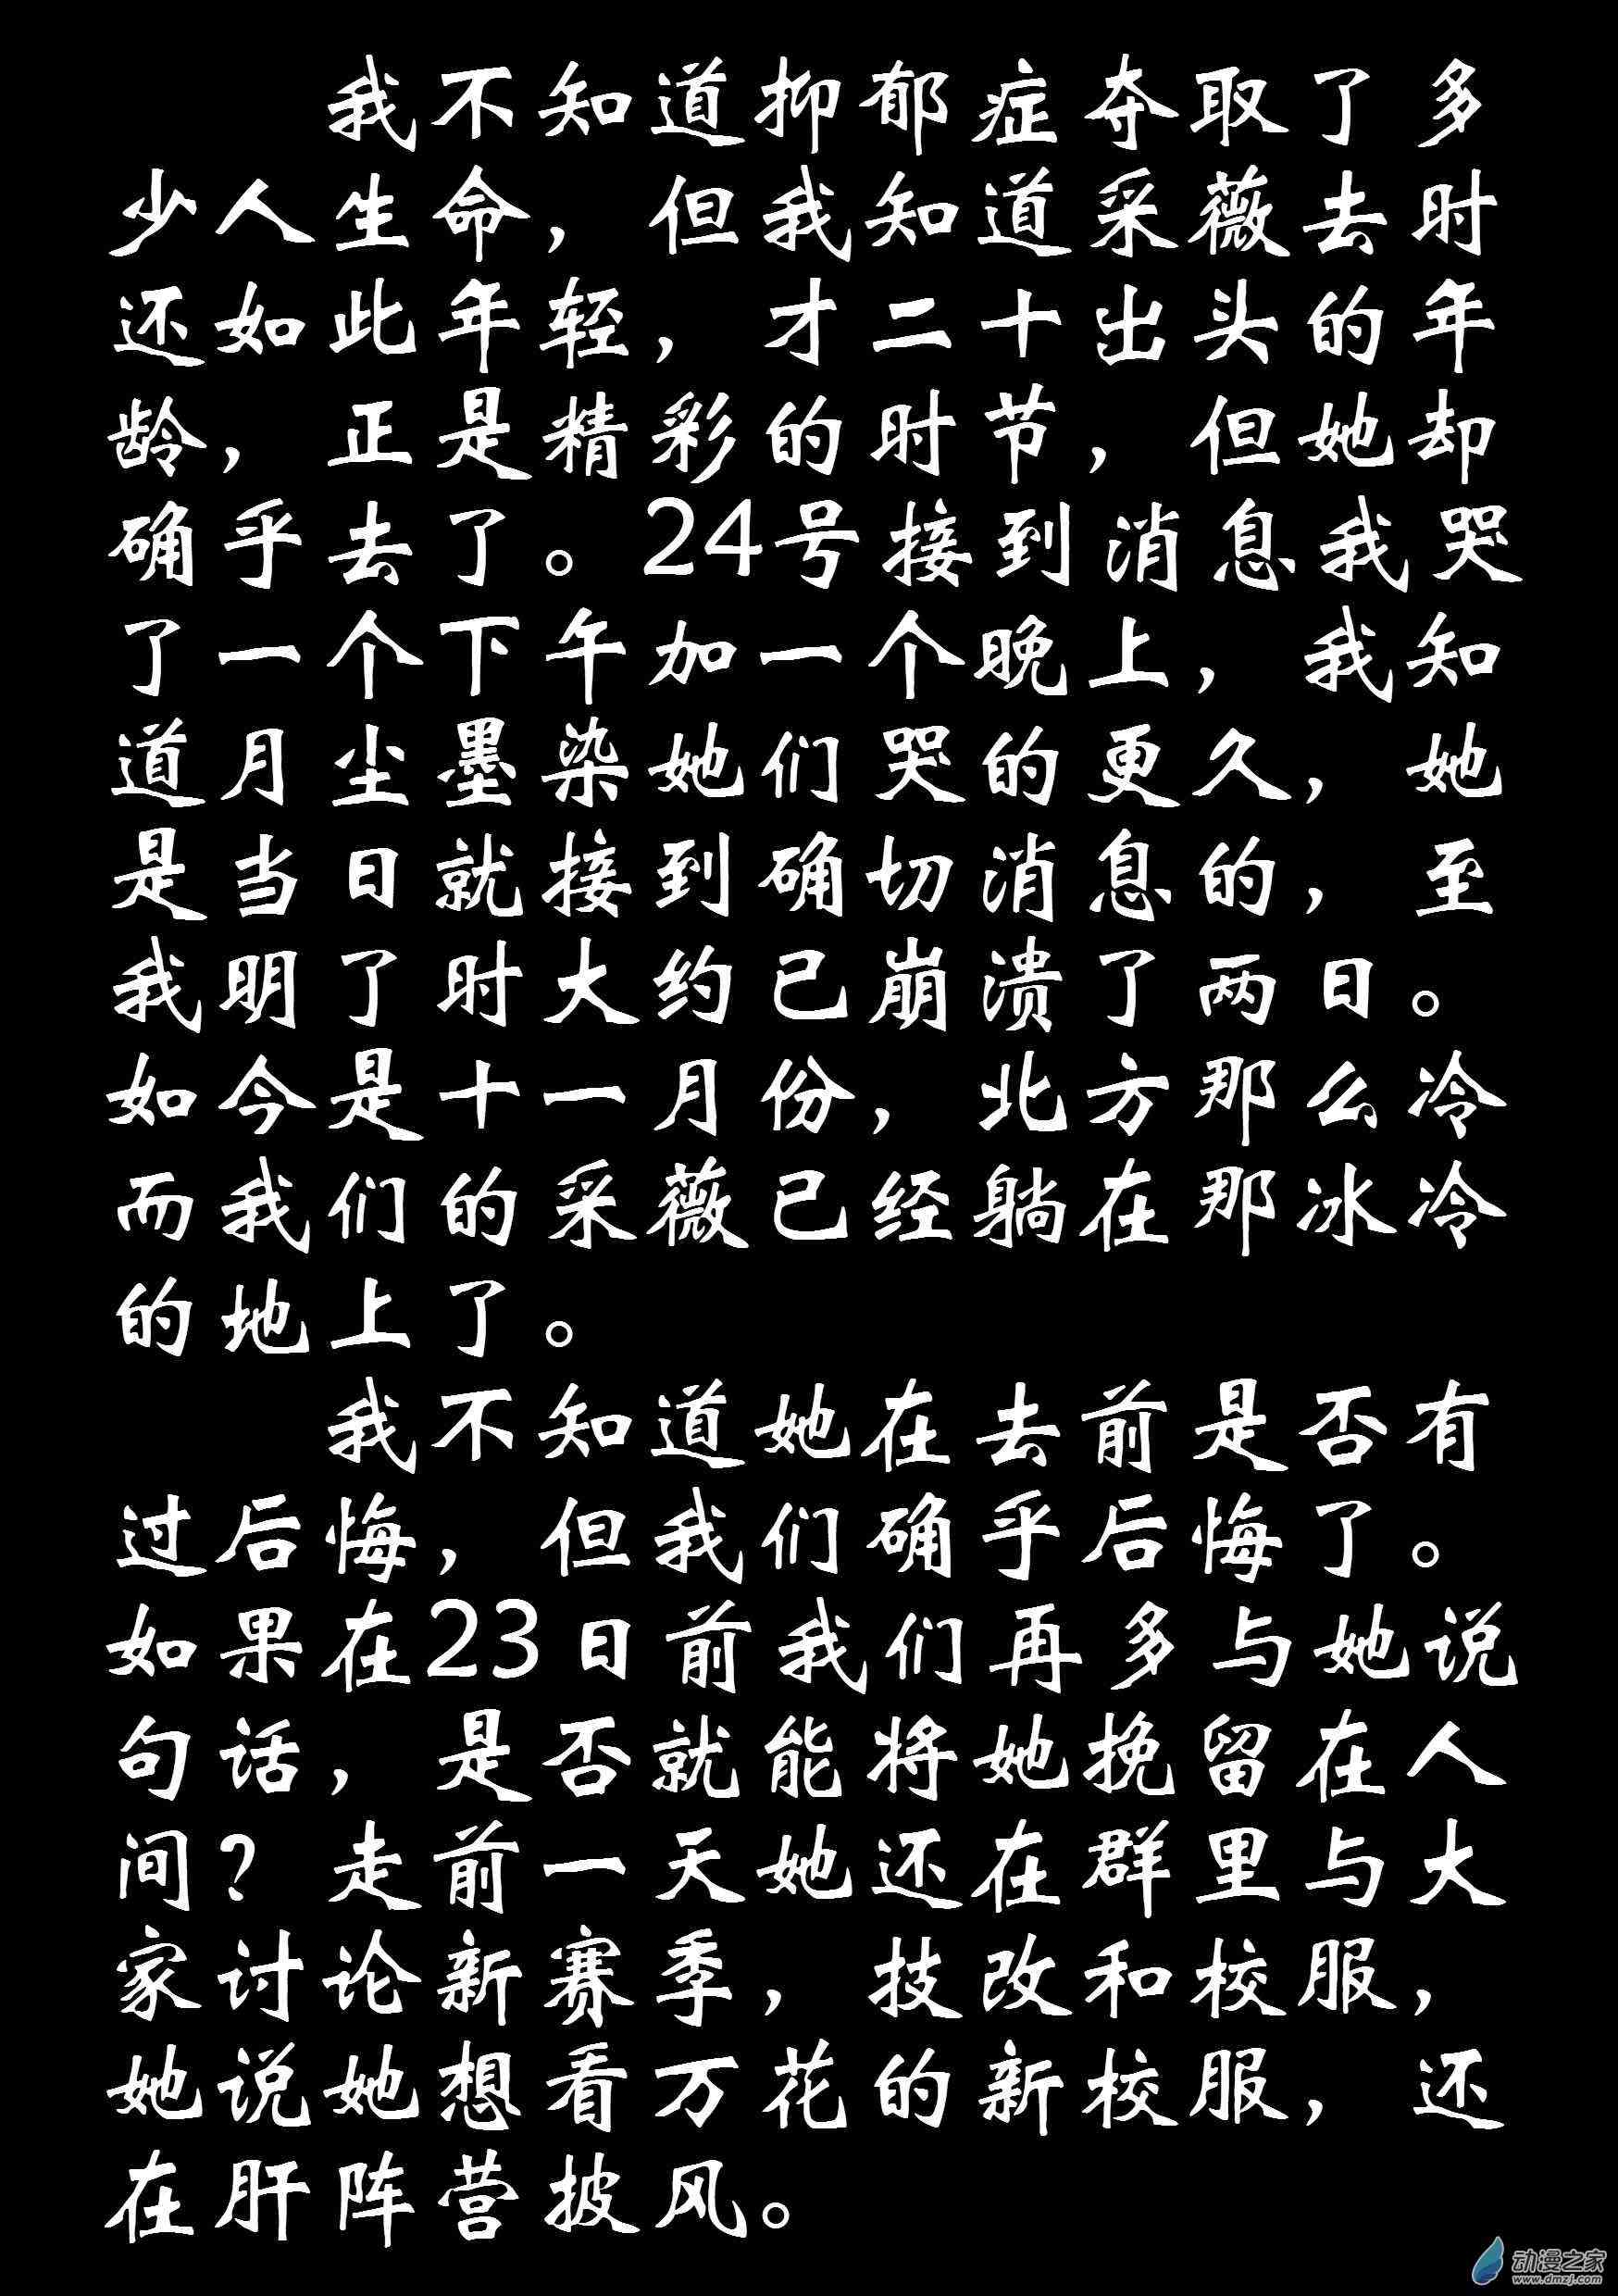 我不知道抑郁症夺取了多
少人生命，但我知道采薇去时
还如此年轻，才二十出头的年
龄，正是精彩的时节，但她却
确乎去了。24号接到消息我哭
了一个下午加一个晚上，我知
道月尘墨染她们哭的更久，她
是当日就接到确切消息的，至
我明了时大约已崩溃了两日。
如今是十一月份，北方那么冷
而我们的采薇已经躺在那冰冷
的地上了。
我不知道她在去前是否有
过后悔，但我们确乎后悔了。
如果在23日前我们再多与她说
句话，是否就能将她挽留在人
间？走前一天她还在群里与大
家讨论新赛季，技改和校服，
她说她想看万花的新校服，还
在肝阵营披风。
动漫之家
www.dmzj.com